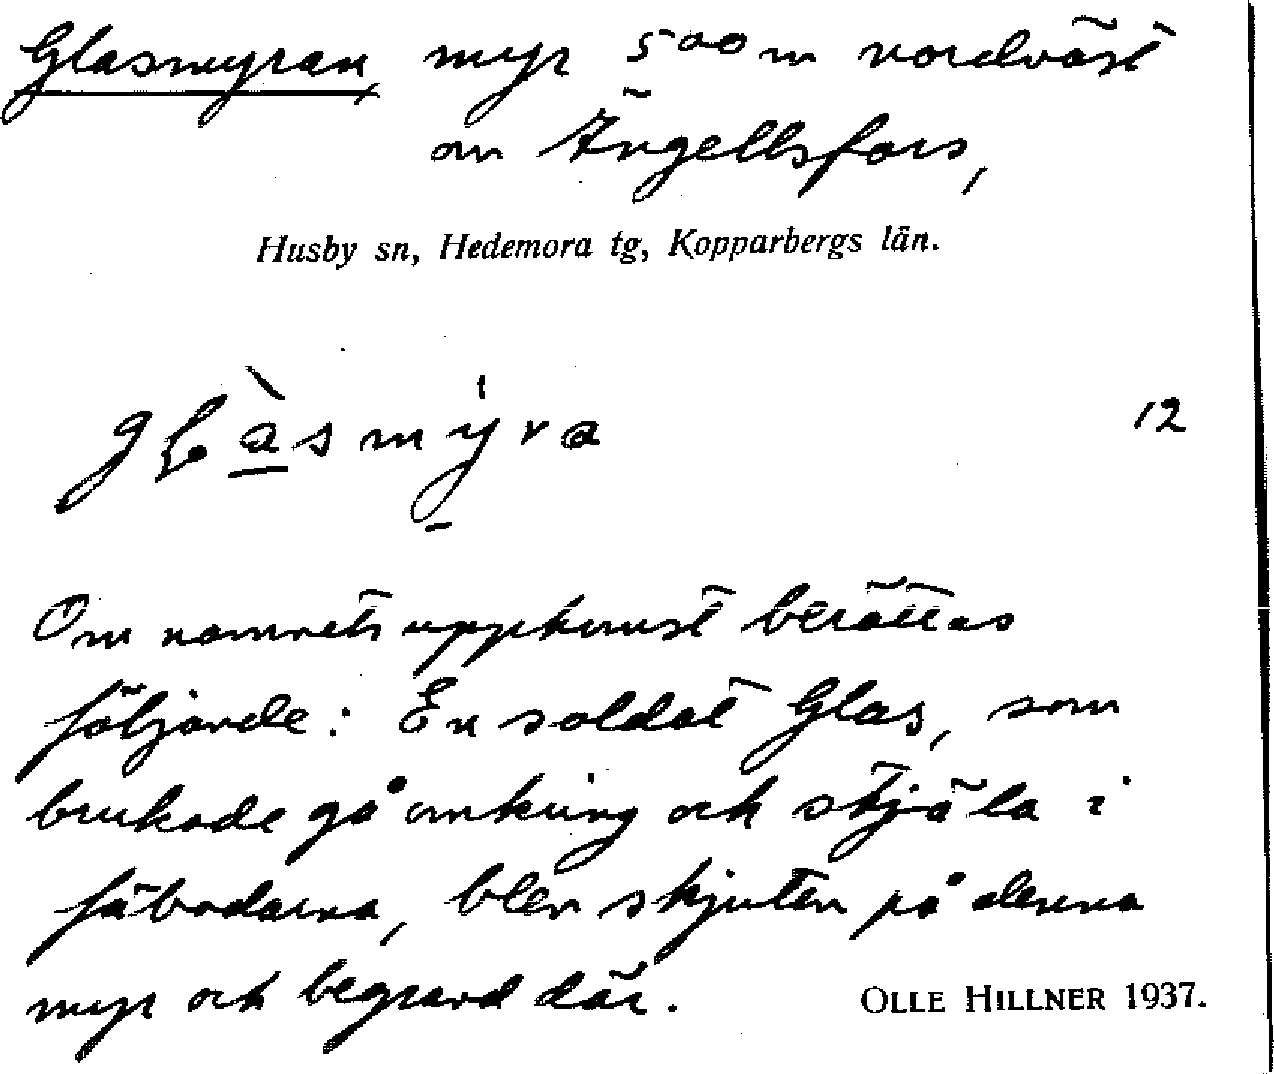 Glasmyran, myr 500 m nordväst
om Ängellsfors,
Husby sn, Hedemora tg, Kopparbergs län.
glàsmýra 12
Om namnets uppkomst berättas
följande: En soldat Glas, som
brukade gå omkring och stjäla i
fäbodarna, blev skjuten på denna
myr och begravd där.
OLLE HILLNER 1937.